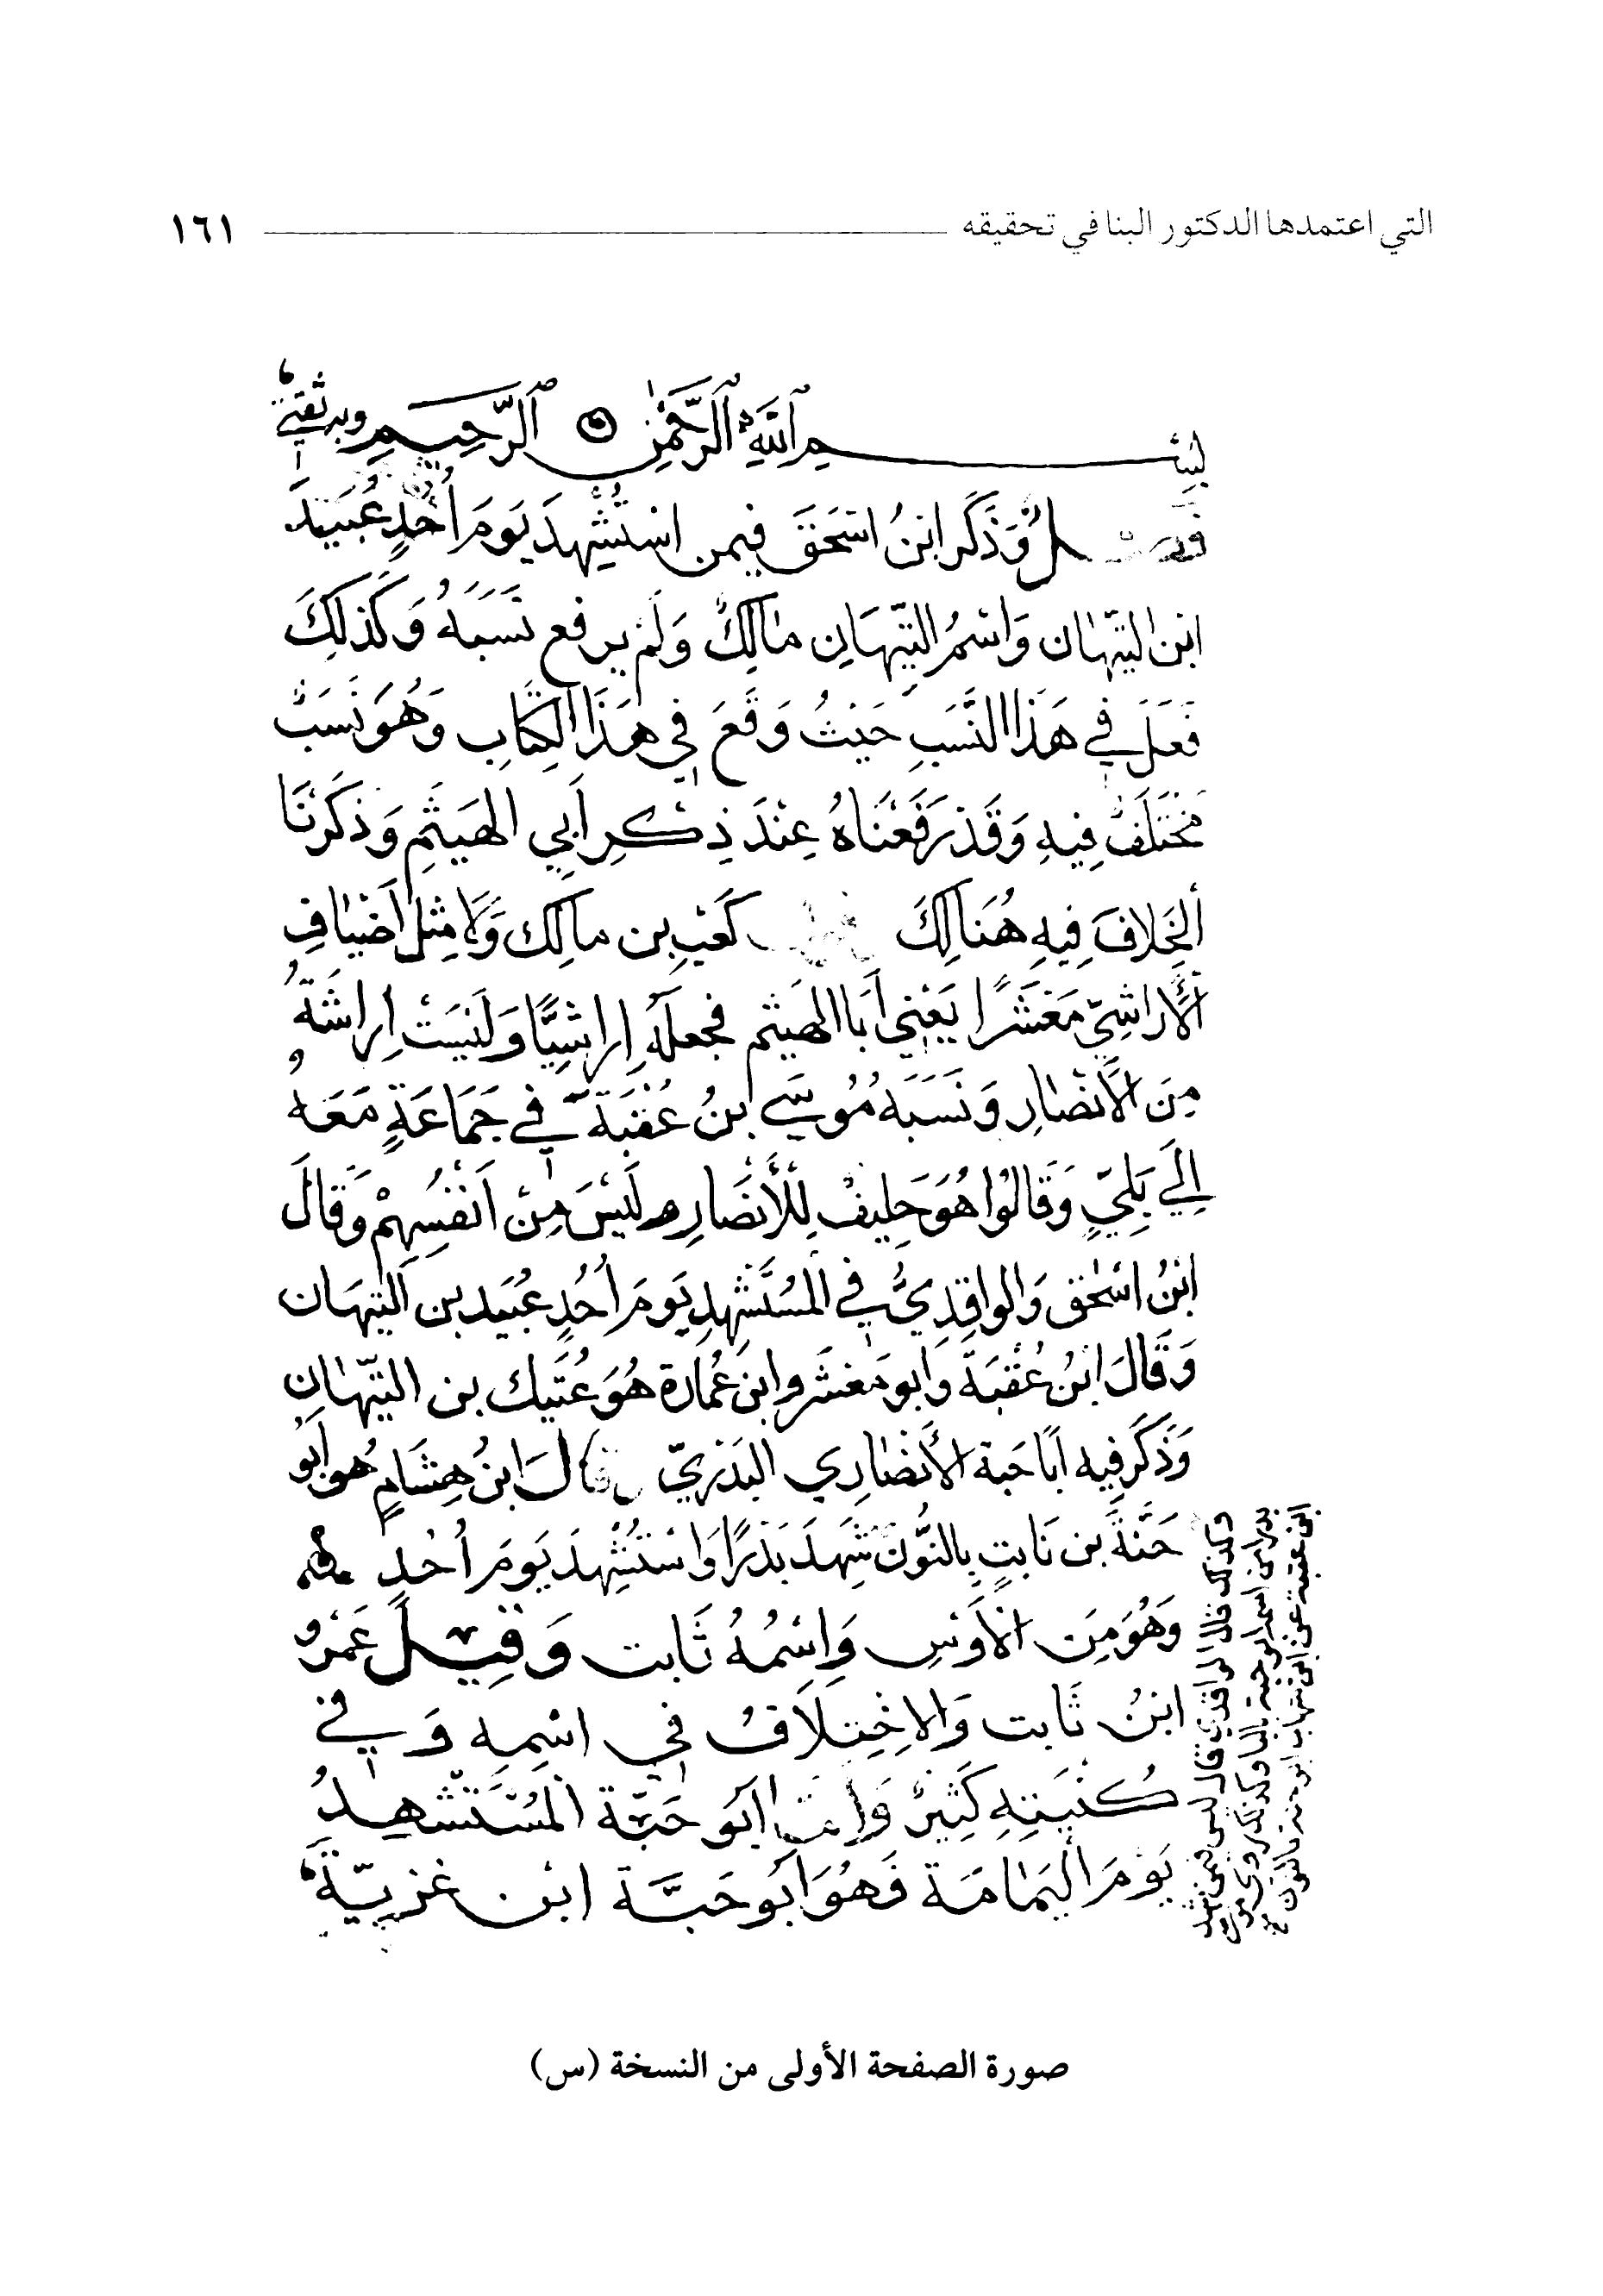 التي اعتمدها الدكتور البنا في تحقيقه ١٦١
بسم الله الرحمن الرحيم وبه ثقتي
فصل وَذَكَر ابنُ اسْحَقَ فيمن اسْتُشْهِدَ يَومَ اُحُدٍ عُبَيْدَ
ابن التيّهان وَاسْمُ التيّهَانِ مَالِكٌ وَلَمْ يرفع نَسَبَهُ وَكَذلِكَ
فَعَلَ في هَذا النَّسَبِ حَيْثُ وَقَعَ في هَذَا الكِتَابِ وَهُوَ نَسَبٌ
مُخْتَلَفٌ فِيهِ وَقَدْ رَفَعْنَاهُ عِنْدَ ذِكْرِ اَبي الهَيْثَمِ وَذَكَرْنَا
الخِلافَ فِيهِ هُنَالِكَ كَعْبِ بن مالك وَلَا مِثْل اَضْيَافِ
الأَرَاشِيِّ مَعْشَرًا يَعْنِي اَبَا الهَيْثم فجعله اِراشِيًّا وَلَيْسَتْ اِراشَةُ
مِنَ الأَنْصَارِ وَنَسَبَهُ مُوسَى ابنُ عُقْبَةَ في جَمَاعَةٍ مَعَهُ
اِلَى بَلِيٍّ وَقَالُوا هُوَ حَلِيفٌ لِلْأَنْصَارِ لَيْسَ مِنْ اَنْفُسِهِمْ وَقَالَ
ابْنُ اسْحَق وَالواقِدِيُّ في المُسْتَشْهِدِ يَومَ اُحُدٍ عُبَيْد بن التيهَان
وَقَالَ ابْنُ عُقْبَةَ وابو مَعْشَر وابن عُمَارَة هُوَ عَتِيك بن التيّهَانِ
وَذَكَرَ فيه اَبَا حَبة الأَنْصَارِي البَدْرِيّ قَالَ ابنُ هِشَامٍ هُو اَبُو
حَنَّةَ بن ثَابتٍ بِالنُّونِ شَهِدَ بَدْرًا وَاسْتُشْهِدَ يَومَ اُحُدٍ
وَهُوَ مِنَ الأَوْسِ وَاسْمُهُ ثَابت وَقِيلَ عَمْرُو
ابنُ ثَابت وَالِاخْتِلَافُ في اسْمِهِ وَفي
كُنْيَتِهِ كَثِيرٌ وَامَّا اَبُو حَبَّة المُسْتَشْهِدُ
يَوْمَ اليَمَامَة فَهُوَ اَبُو حَبَّة ابْن غَزِيَّةَ
وكذلك قال الواقدي قال ليس فيمن شهد
بدرا من اسمه ابو حبة بالبا وكذلك روى
ابن عقبة عن ابن شهاب ابو حنة بالنون
صورة الصفحة الأولى من النسخة (س)